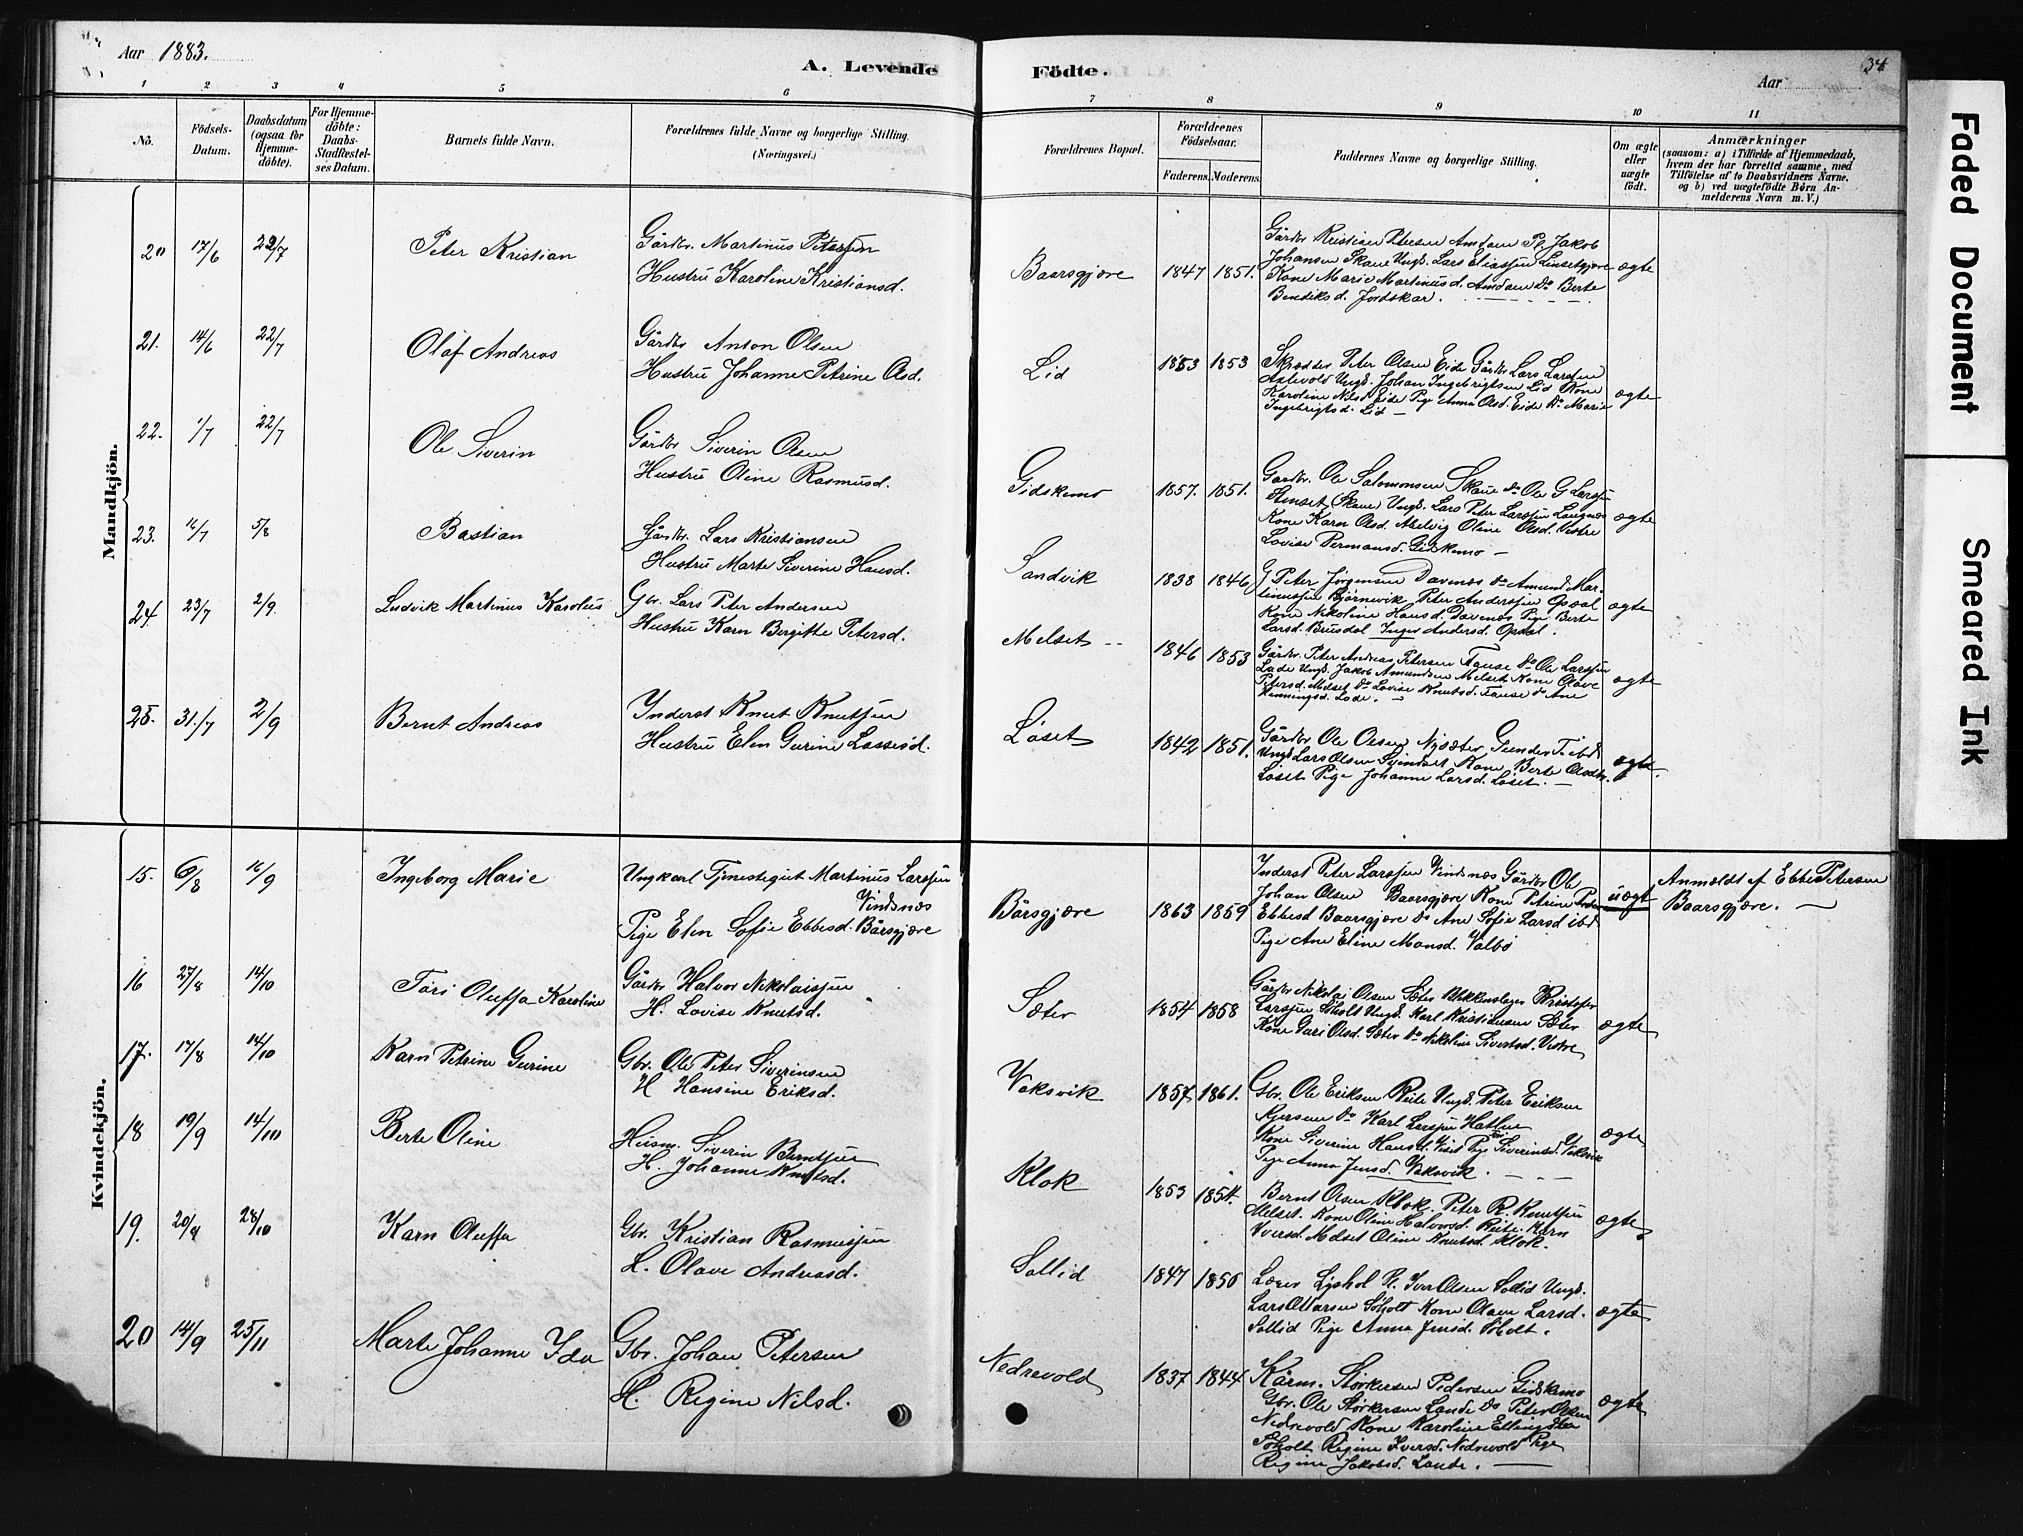 Aar 1883.
A. Levende Födte.
Aar
34
1 2 3 4 5 6 7 8 9 10 11
No.
Födsels-Datum.
Daabsdatum (ogsaa for Hjemme-döbte).
For Hjemme-döbte: Daabs-Stadfæstel-ses Datum.
Barnets fulde Navn.
Forældrenes fulde Navne og borgerlige Stilling.
(Næringsvei.)
Forældrenes Bopæl.
Forældrenes Födselsaar.
Faderens. Moderens.
Faddernes Navne og borgerlige Stilling.
Om ægte eller uægte födt.
Anmærkninger
(saasom: a) i Tilfælde af Hjemmedaab,
hvem der har forrettet samme, med
Tilföielse af to Daabsvidners Navne.
og b) ved uægtefödte Börn An-
melderens Navn m. V.)
Mandkjön.
20 17/6 22/7 Peter Kristian
Gårdbr. Martinus Petersen
Hustru Karoline Kristiansd.
Baarsgjøre 1847 1851.
Gårdbr Kristian Petersen Amdam Pl. Jakob
Johansen Skaue Ungk. Lars Eliassen Linsetgjøre
Kone Marie Martinusd. Amdam Do Berte
Bendiksd. Jordskar.
ægte
21. 14/6 22/7 Olaf Andreas
Gårdbr Anton Olsen
Hustru Johanne Petrine Olsd.
Lid 1853 1853
Skrædder Peter Olsen Eide Gårdbr Lars Larssen
Ungk. Johan Ingebrigtsen Lid Kone
Karoline Nilsd Eide Pige Anna Olsd. Eide Do Marie
Ingebrigtsd. Lid
ægte
22. 1/7 22/7 Ole Siverin
Gårdbr Siverin Olsen
Hustru Oline Rasmusd.
Gidskemo 1857. 1851.
Gårdbr. Ole Salomonsen Skaue Do Ole G Larssen
Skaue Ungk. Lars Peter Larssen Langnes
Kone Karn Olsd. Oline Olsd. Vestre
Lovise Permansd. Gidskemo
ægte
23. 16/7 5/8 Bastian
Gårdbr. Lars Kristiansen
Hustru Marte Siverine Hansd.
Sandvik 1838 1846
G Peter Jørgensen Davenes Do Amund Mar-
tinussen Bjørnevik Peter Anderssen Opdal
Kone Nikoline Hansd. Davenes Pige Berte
Larsd. Brusdal Inger Andersd. Opdal.
ægte
24. 23/7 2/9. Ludvik Martinus Karolus
Gbr. Lars Peter Andersen
Hustru Karn Bergitte Petersd.
Melset 1846 1853
Gårdbr. Peter Andreas Petersen Fause Do Ole Larssen
Lade Ungk. Jakob Amundsen Melset Kone Olave
Petersd. Melset Do Lovise Knutsd. Fause Do Ane
Henningsd. Lade.
ægte
25. 31./7 2/9 Bernt Andreas
Inderst Knut Knutsen
Hustru Elen Gurine Lassesd.
Løset 1842 1851.
Gårdbr Ole Olsen Nysæter Gunder T. ibd
Ungk Lars Olsen Svindset Kone Berte Olsdtr.
Løset Pige Johanne Larsd. Løset.
ægte.
Kvindekjön.
15. 6/8 16/9 Ingeborg Marie
Ungkarl Tjenestegut Martinus Larssen
Vindsnæs
Pige Elen Sofie Ebbesd. Bårsgjøre
Bårsgjøre 1863 1859
Inderst Peter Larssen Vindsnæs Gårdbr Ole
Johan Olsen Baarsgjøre Kone Petrine
Ebbesd Baarsgjøre Do Ane Sofie Larsd ibd
Pige Ane Eline Monsd. Valbø
uægt
Anmeldt af Ebbe Petersen
Baarsgjøre.
16 27/8 14/10 Turi Oluffa Karoline
Gårdbr Halvor Nikolaissen
H. Lovise Knutsd.
Sæter 1854 1858
Gårdbr Nikolai Olsen Sæter Blikkenslager Kristofer
Larssen Søholt Ungk. Karl Kristiansen Sæter
Kone Guri Olsd. Sæter Do Nikoline Sivertsd. Vestre
ægte
17. 17/8 14/10 Karn Petrine Gurine
Gbr. Ole Peter Siverinsen
H Hansine Eriksd.
Vaksvik 1857 1861.
Gbr. Ole Eriksen Reite Ungk. Peter Eriksen
Do Karl Larssen Hatlen
Kone Siverine Hansd. Pige Siverinsd. Vaksvik
Pige Anna Jensd. Vaksvik.
ægte
18 19/9 14/10 Berte Oline
Husm. Siverin Berntsen
H. Johanne Knutsd.
Klok 1853 1854.
Bernt Olsen Klok. Peter R. Knutsen
Melset. Kone Oline Halvorsd. Reite. Karn
Iversd. Melset Oline Knutsd. Klok.
ægte
19. 20/9 28/10 Karn Oluffa
Gbr. Kristian Rasmussen
H. Olave Andreasd.
Sollid 1847 1850
Lærer Lyshol Pl. Iver Olsen Sollid Ungk.
Lars Ottarsen Søholt Kone Olave Larsd.
Sollid Pige Anna Jensd. Søholt.
ægte
20 14/9 25/11 Marte Johanne Ida
Gbr. Johan Petersen
H. Regine Nilsd.
Nedrevold 1837 1844
Kårm. Størkersen Pedersen Gidskemo
Gbr. Ole Størkersen Lande Do Peter Olsen
Nedrevold Kone Karoline Ellingsdtr
Søholt Regine Iversd. Nedrevold Pige
Regine Jakobsd. Lande.
ægte
Faded Document
Smeared Ink